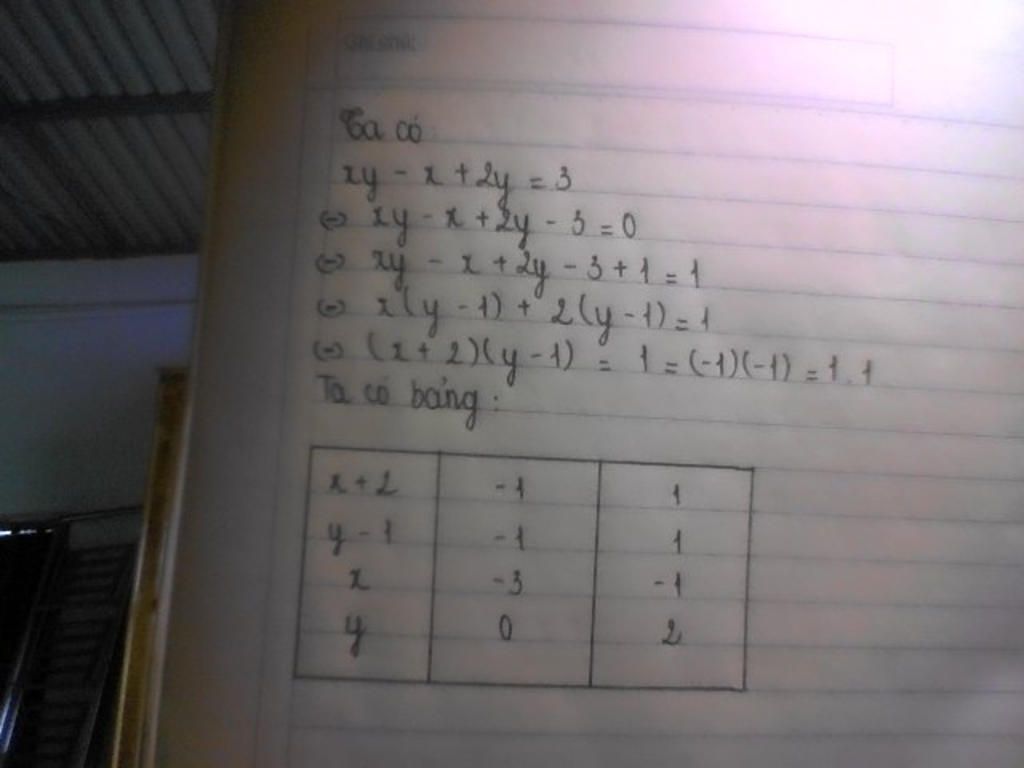 Ta có
xy - x + 2y = 3
⇔ xy - x + 2y - 3 = 0
⇔ xy - x + 2y - 3 + 1 = 1
⇔ x(y - 1) + 2(y - 1) = 1
⇔ (x + 2)(y - 1) = 1 = (-1)(-1) = 1.1
Ta có bảng:
x + 2 -1 1
y - 1 -1 1
x -3 -1
y 0 2